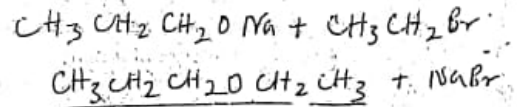 CH3 CH2 CH2 O Na + CH3 CH2 Br
CH3 CH2 CH2O CH2 CH3 + NaBr